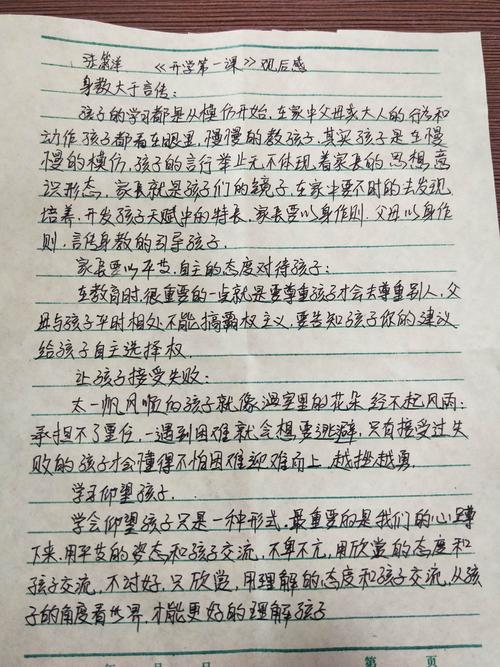 张箫洋 《开学第一课》观后感
身教大于言传：
孩子的学习都是从模仿开始，在家中父母亲大人的行为和
动作，孩子都看在眼里，慢慢的教孩子，其实孩子是在慢
慢的模仿，孩子的言行举止无不体现着家长的思想，意
识形态，家长就是孩子们的镜子，在家中要不时的去发现
培养，开发孩子天赋中的特长，家长要以身作则，父母以身作
则，言传身教的引导孩子。
家长要以平等，自主的态度对待孩子：
在教育时，很重要的一点就是要尊重孩子才会去尊重别人，父
母与孩子平时相处不能搞霸权主义，要告知孩子你的建议
给孩子自主选择权。
让孩子接受失败：
太一帆风顺的孩子就像温室里的花朵经不起风雨；
承担不了重任，一遇到困难就会想要逃避，只有接受过失
败的孩子才会懂得不怕困难迎难而上，越挫越勇。
学习仰望孩子。
学会仰望孩子只是一种形式，最重要的是我们的心蹲
下来，用平等的姿态和孩子交流，不卑不亢，用欣赏的态度和
孩子交流，不讨好，只欣赏，用理解的态度和孩子交流，从孩
子的角度看世界，才能更好的理解孩子
年 月 日 第 页